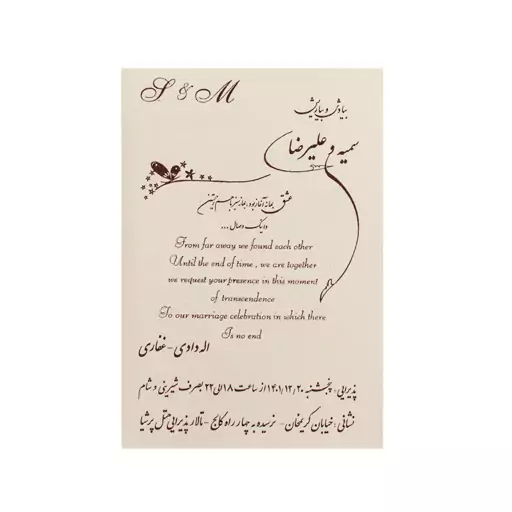 S & M
بیادش و بیاریش
سمیه و علیرضا
عشق بهانه آغاز بود، بهانه سبز با هم زیستن
و اینک وصال ...
From far away we found each other
Until the end of time , we are together
we request your presence in this moment
of transcendence
To our marriage celebration in which there
Is no end
اله دادی - غفاری
پذیرایی : پنجشنبه ۱۴۰۱/۱۲/۲۰ از ساعت ۱۸ الی ۲۲ بصرف شیرینی و شام
نشانی : خیابان کریمخان - نرسیده به چهار راه کالج - تالار پذیرایی هتل پرشیا